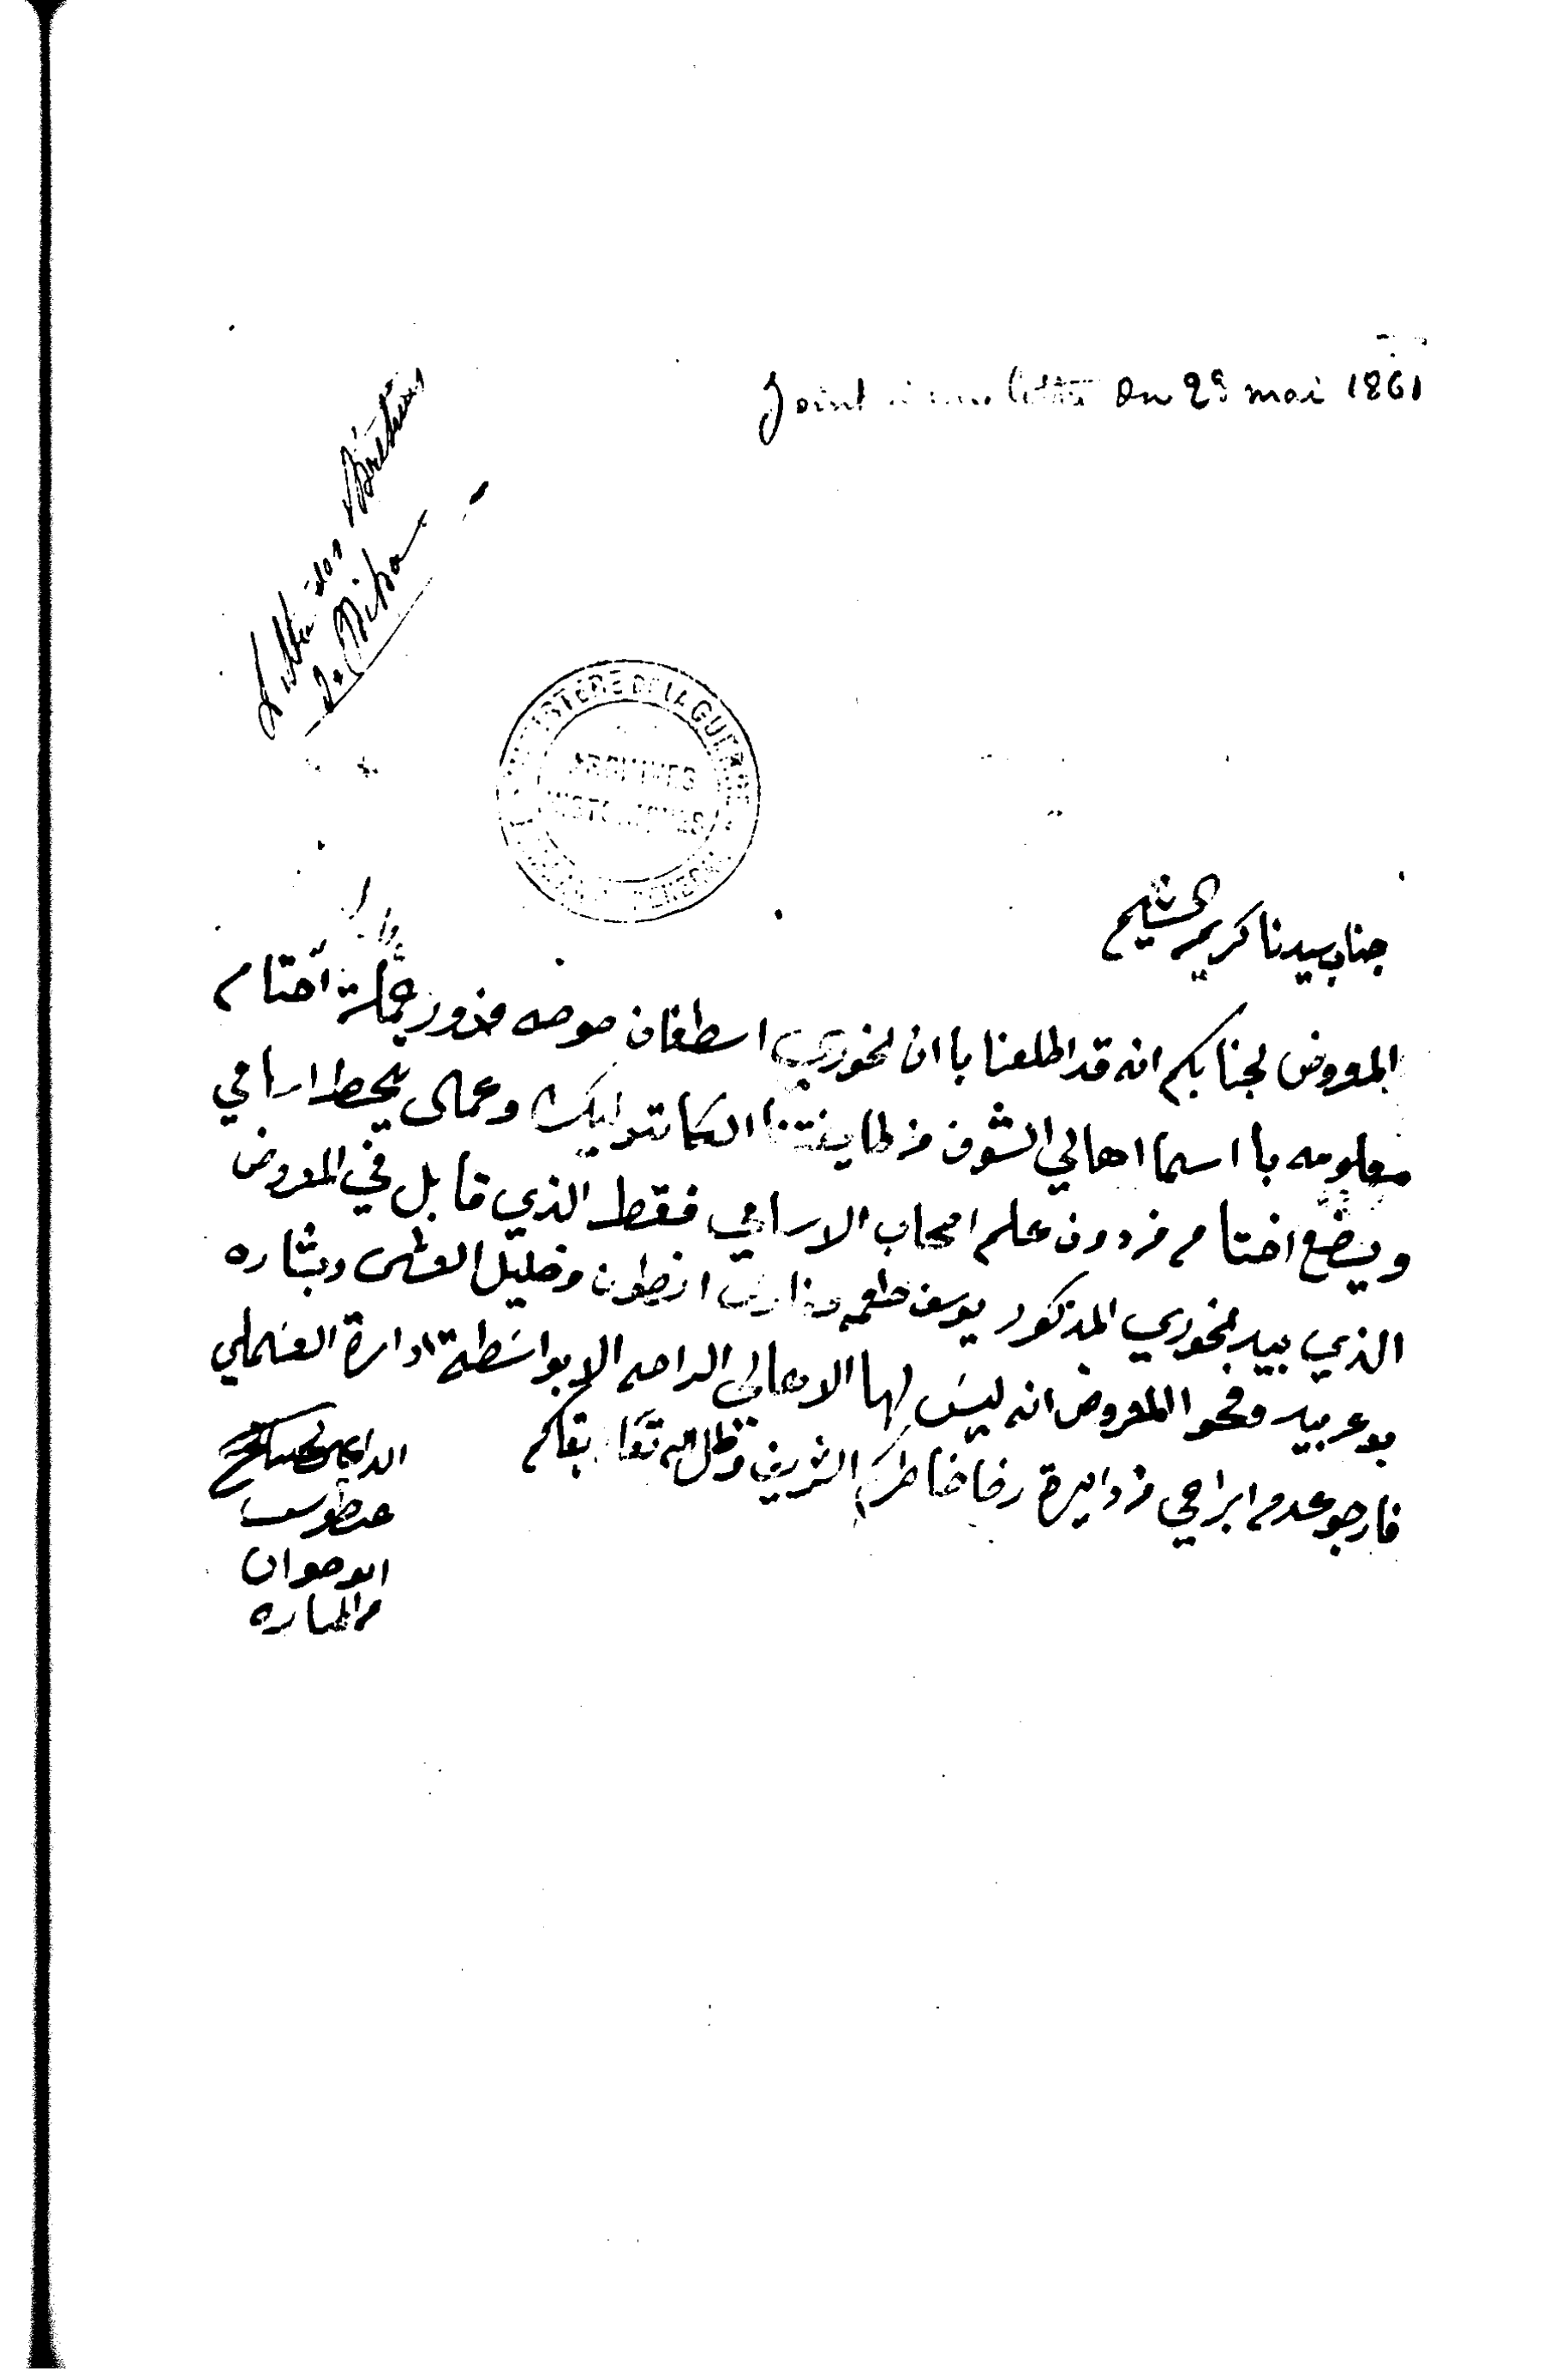 Joint à une lettre du 29 mai 1861
Lettre des
de Niha
MINISTÈRE DE LA GUERRE
ARCHIVES
HISTORIQUES
جناب سيدنا كريم الشيم
المعروض لجنابكم انه قد اطلعنا با ان لخوري اسطفان مزور عملة اختام
معلومه با اسما اهالي الشوف من طايفتنا الكاتوليك وعمال يحط اسامي
ويضع اختام من دون علم اصحاب الاسامي فقط الذي قابل في المعروض
الذي بيد لخوري المذكور يوسف طعمه انطون وخليل وبشاره
بو عربيد وفحوا المعروض انه ليس لها الاهالي الراحه الا بواسطة ادارة العسملي
فارجو عدم ابراحي من دايرة رضا خاطركم الشريف وطال الله تعا بقاكم
الداعي
ابو